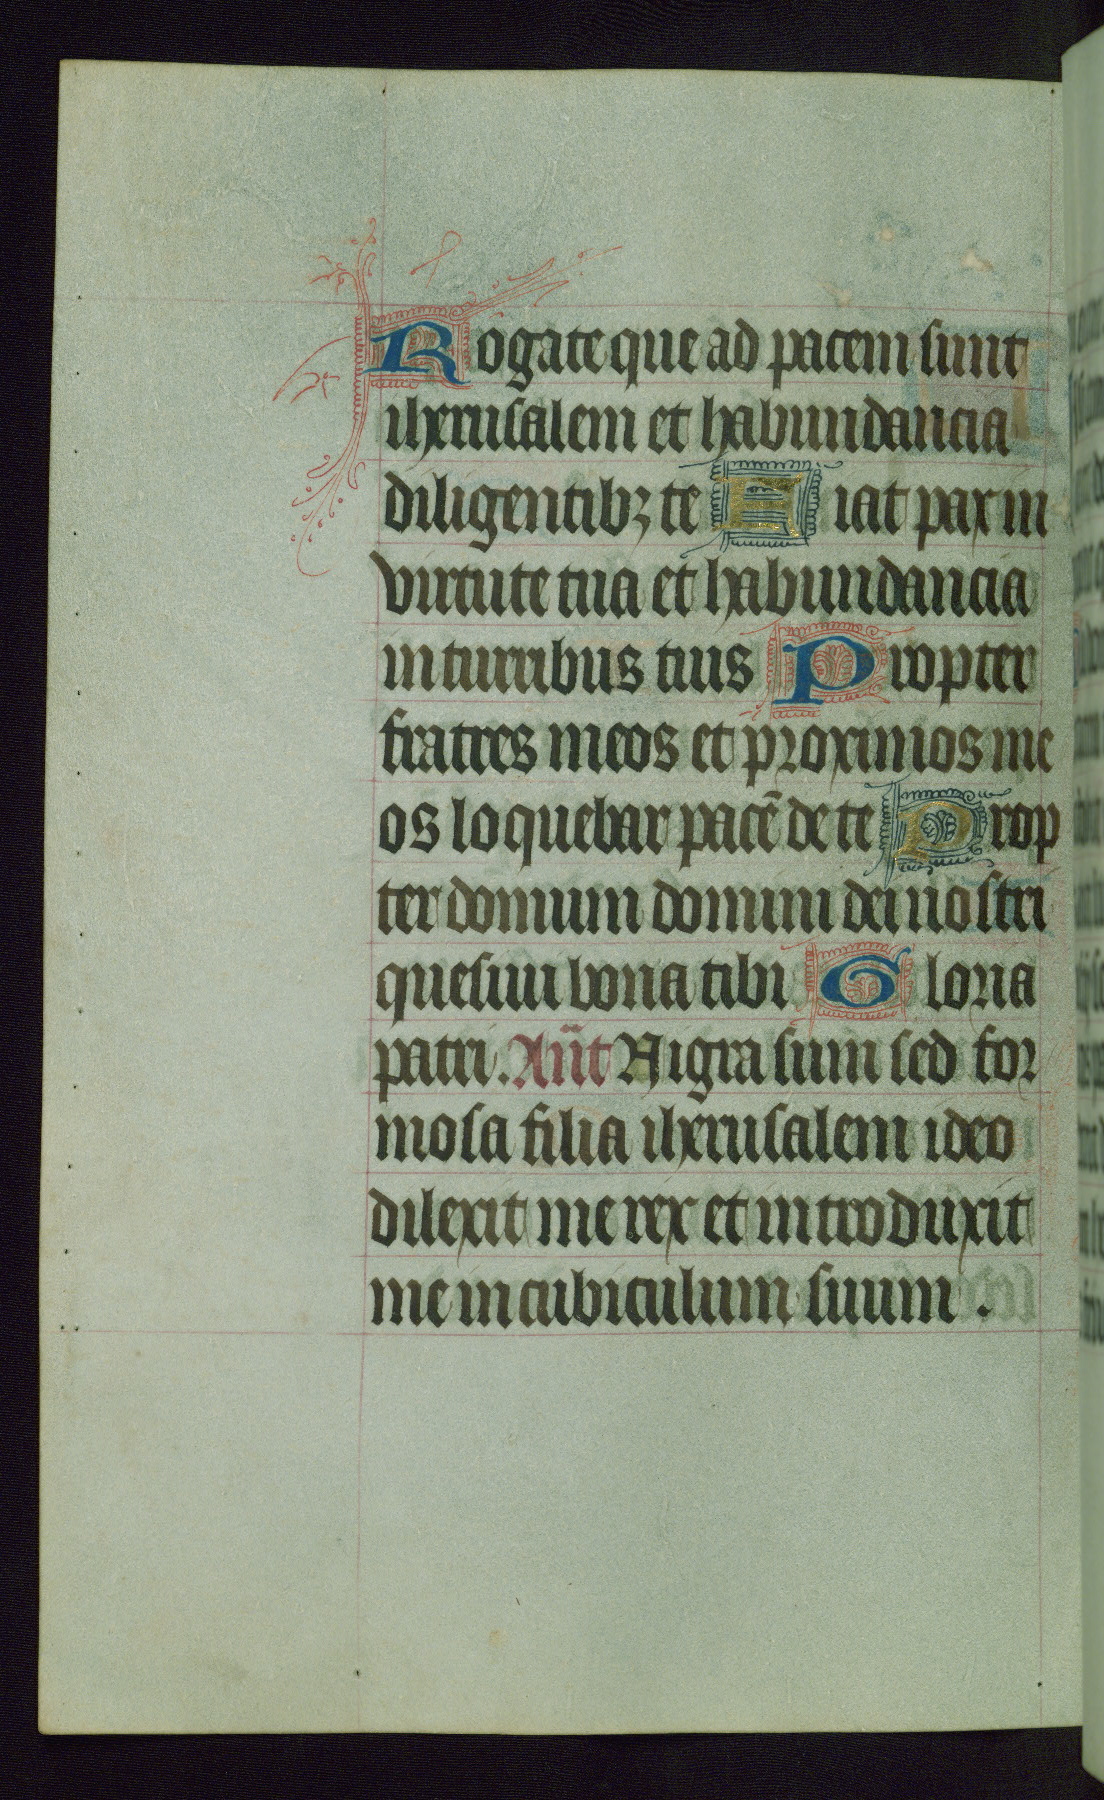 Rogate que ad pacem sunt
iherusalem et habundancia
diligentibꝫ te Fiat pax in
virtute tua et habundancia
in turribus tuis Propter
fratres meos et proximos me
os loquebar pacē de te Prop
ter domum domini dei nostri
quesiui bona tibi Gloria
patri. Añt Nigra sum sed for
mosa filia iherusalem ideo
dilexit me rex et introduxit
me in cubiculum suum .